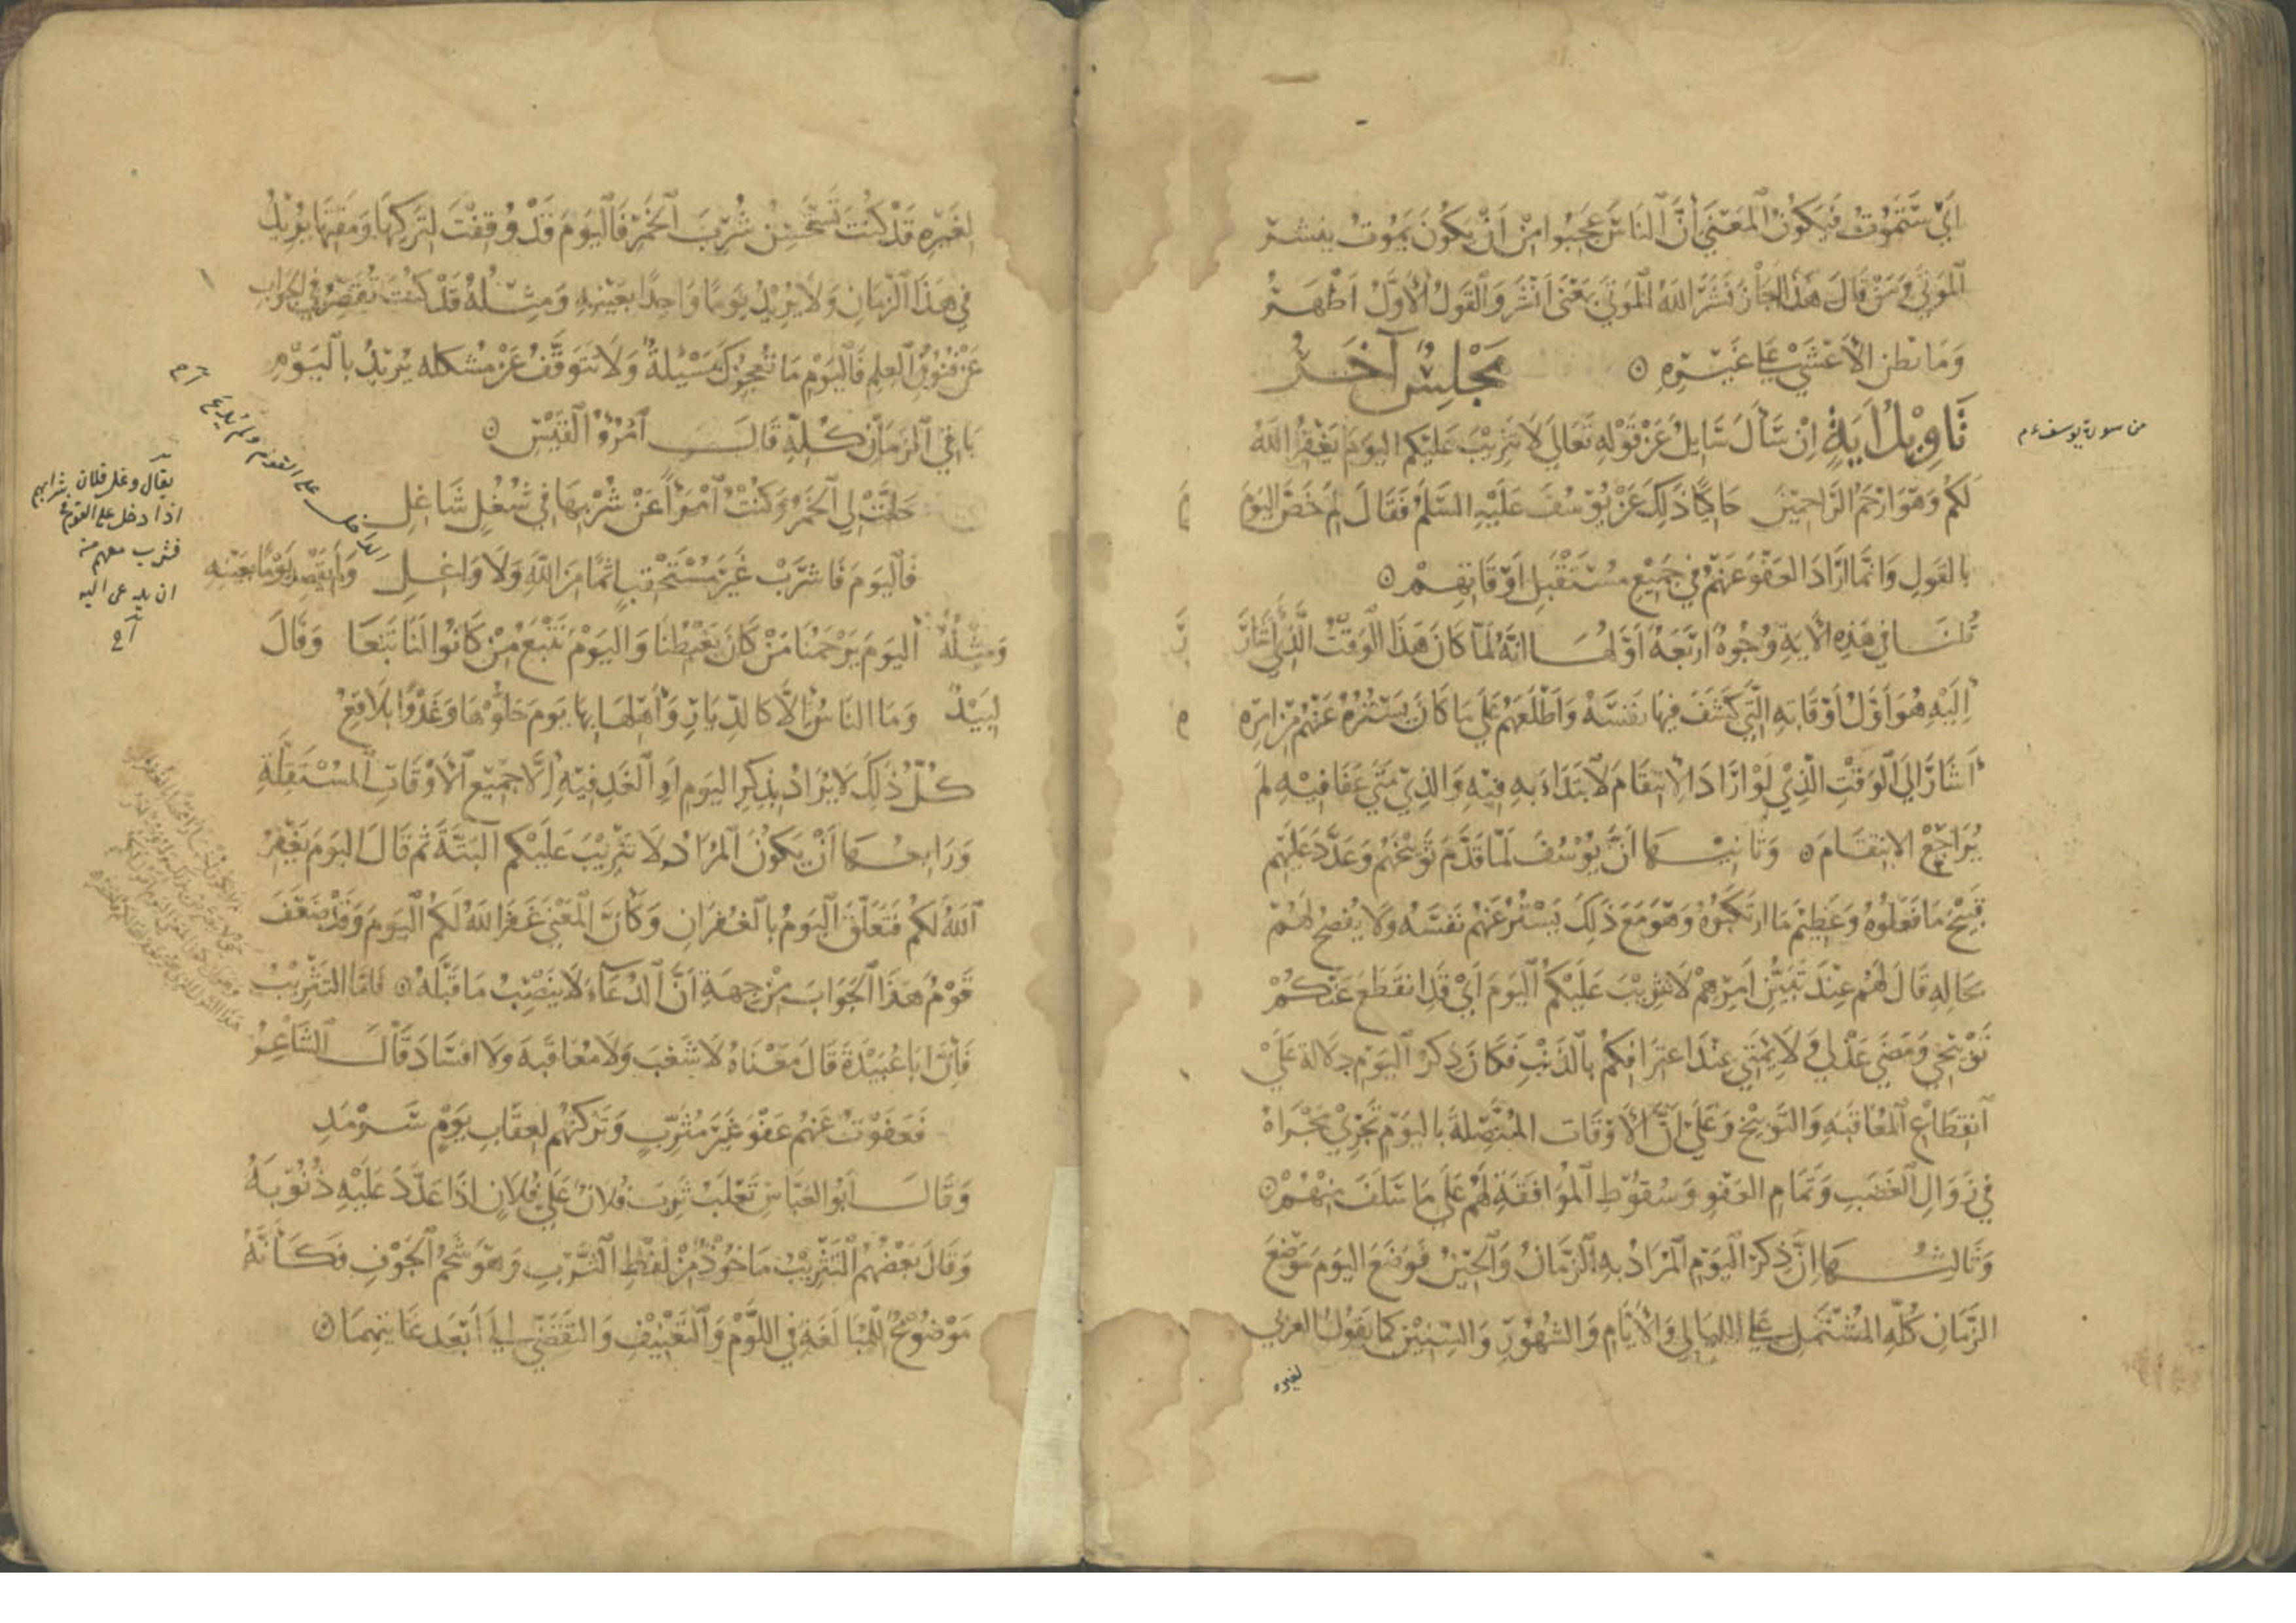 اي ستموت فيكون المعنى ان الناس عجبوا من ان يكون يموت ينشر
الموتى ومن قال هذا اجاز نشر الله الموتى بمعنى انشر والقول الاول اظهر
وما نظن الاعشى على غيره ۞ مجلس آخر
تاويل اية ان سأل سايل عن قوله تعالى لا تثريب عليكم اليوم يغفر الله
لكم وهو ارحم الراحمين حاكيا ذلك عن يوسف عليه السلم فقال لم خص اليوم
بالقول وانما اراد العفو عنهم في جميع مستقبل اوقاتهم ۞
قلنا في هذه الاية وجوه اربعة اولها انه لما كان هذا الوقت الذي اشار
اليه هو اول اوقاته التي كشف فيها نفسه واطلعهم على ما كان يستره عنهم من امره
اشار الى الوقت الذي لو اراد الانتقام لابتداء به فيه والذي متى عفا فيه لم
يراجع الانتقام ۞ وثانيها ان يوسف لما قدم توبيخهم وعدد عليهم
قبيح ما فعلوه وعظيم ما ارتكبوه وهو مع ذلك يستر عنهم نفسه ولا يفصح لهم
بحاله قال لهم عند تبين امرهم لا تثريب عليكم اليوم اي قد انقطع عنكم
توبيخي ومضى عذلي ولايمتي عند اعترافكم بالذنب فكان ذكر اليوم دلالة على
انقطاع المعاقبة والتوبيخ وعلى ان الاوقات المتصلة باليوم تجري مجراه
في زوال الغضب وتمام العفو وسقوط الموافقة لهم على ما سلف منهم ۞
وثالثها ان ذكر اليوم المراد به الزمان والحين فوضع اليوم موضع
الزمان كله المشتمل على الليالي والايام والشهور والسنين كما يقول العربي
لغيره
من سورة يوسف ع م
لغيره قد كنت تستحسن شرب الخمر فاليوم قد وقفت لتركها ومقتها يريد
في هذا الزمان ولا يريد يوما واحدا بعينه ومثله قد كنت تقصر في الجواب
عن فنون العلم فاليوم ما تعجزك مسيلة ولا تتوقف عن مشكله يريد باليوم
باقي الزمان كله قال امرؤ القيس ۞
حلت لي الخمر وكنت امرأ عن شربها في شغل شاغل
فاليوم فاشرب غير مستحقب اثما من الله ولا واغل ولم يقصد يوما بعينه
ومثله اليوم يرحمنا من كان يغبطنا واليوم نتبع من كانوا لنا تبعا وقال
لبيد وما الناس الا كالديار واهلها بها يوم حلوها وغدوا بلاقع
كل ذلك لا يراد بذكر اليوم او الغد فيه الا جميع الاوقات المستقبلة
ورابعها ان يكون المراد لا تثريب عليكم البتة ثم قال اليوم يغفر
الله لكم فتعلق اليوم بالغفران وكأن المعنى غفر الله لكم اليوم وقد ضعف
قوم هذا الجواب من جهة ان الدعاء لا ينصب ما قبله ۞ فاما التثريب
فان ابا عبيدة قال معناه لا شغب ولا معاقبة ولا افساد قال الشاعر
فعفوت عنهم عفو غير مثرب وتركتهم لعقاب يوم سرمد
وقال ابو العباس ثعلب ثرب فلان على فلان اذا عدد عليه ذنوبه
وقال بعضهم التثريب ماخوذ من لفظ الثرب وهو شحم الجوف فكانه
موضوع للمبالغة في اللوم والتعنيف والتقصي الى ابعد غايتهما ۞
يقال وغل فلان
اذا دخل على القوم في شرابهم
فشرب معهم من
ان يدعى اليه